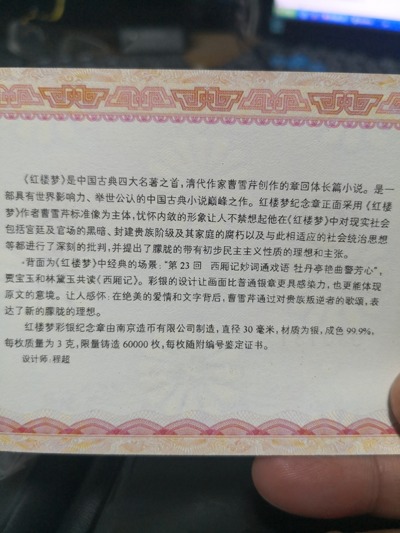 《红楼梦》是中国古典四大名著之首,清代作家曹雪芹创作的章回体长篇小说。是一
部具有世界影响力、举世公认的中国古典小说巅峰之作。红楼梦纪念章正面采用《红
楼梦》作者曹雪芹标准像为主体,忧怀内敛的形象让人不禁想起他在《红楼梦》中对现实社会
包括宫廷及官场的黑暗、封建贵族阶级及其家庭的腐朽以及与此相适应的社会统治思想
等都进行了深刻的批判,并提出了朦胧的带有初步民主主义性质的理想和主张。
背面为《红楼梦》中经典的场景:"第 23 回 西厢记妙词通戏语 牡丹亭艳曲警芳心",
贾宝玉和林黛玉共读《西厢记》。彩银的设计让画面比普通银章更具感染力,也更能体现
原文的意境。让人感怀:在绝美的爱情和文字背后,曹雪芹通过对贵族叛逆者的歌颂,表
达了新的朦胧的理想。
红楼梦彩银纪念章由南京造币有限公司制造,直径 30 毫米,材质为银,成色 99.9%,
每枚质量为 3 克,限量铸造 60000 枚,每枚随附编号鉴定证书。
设计师:程超